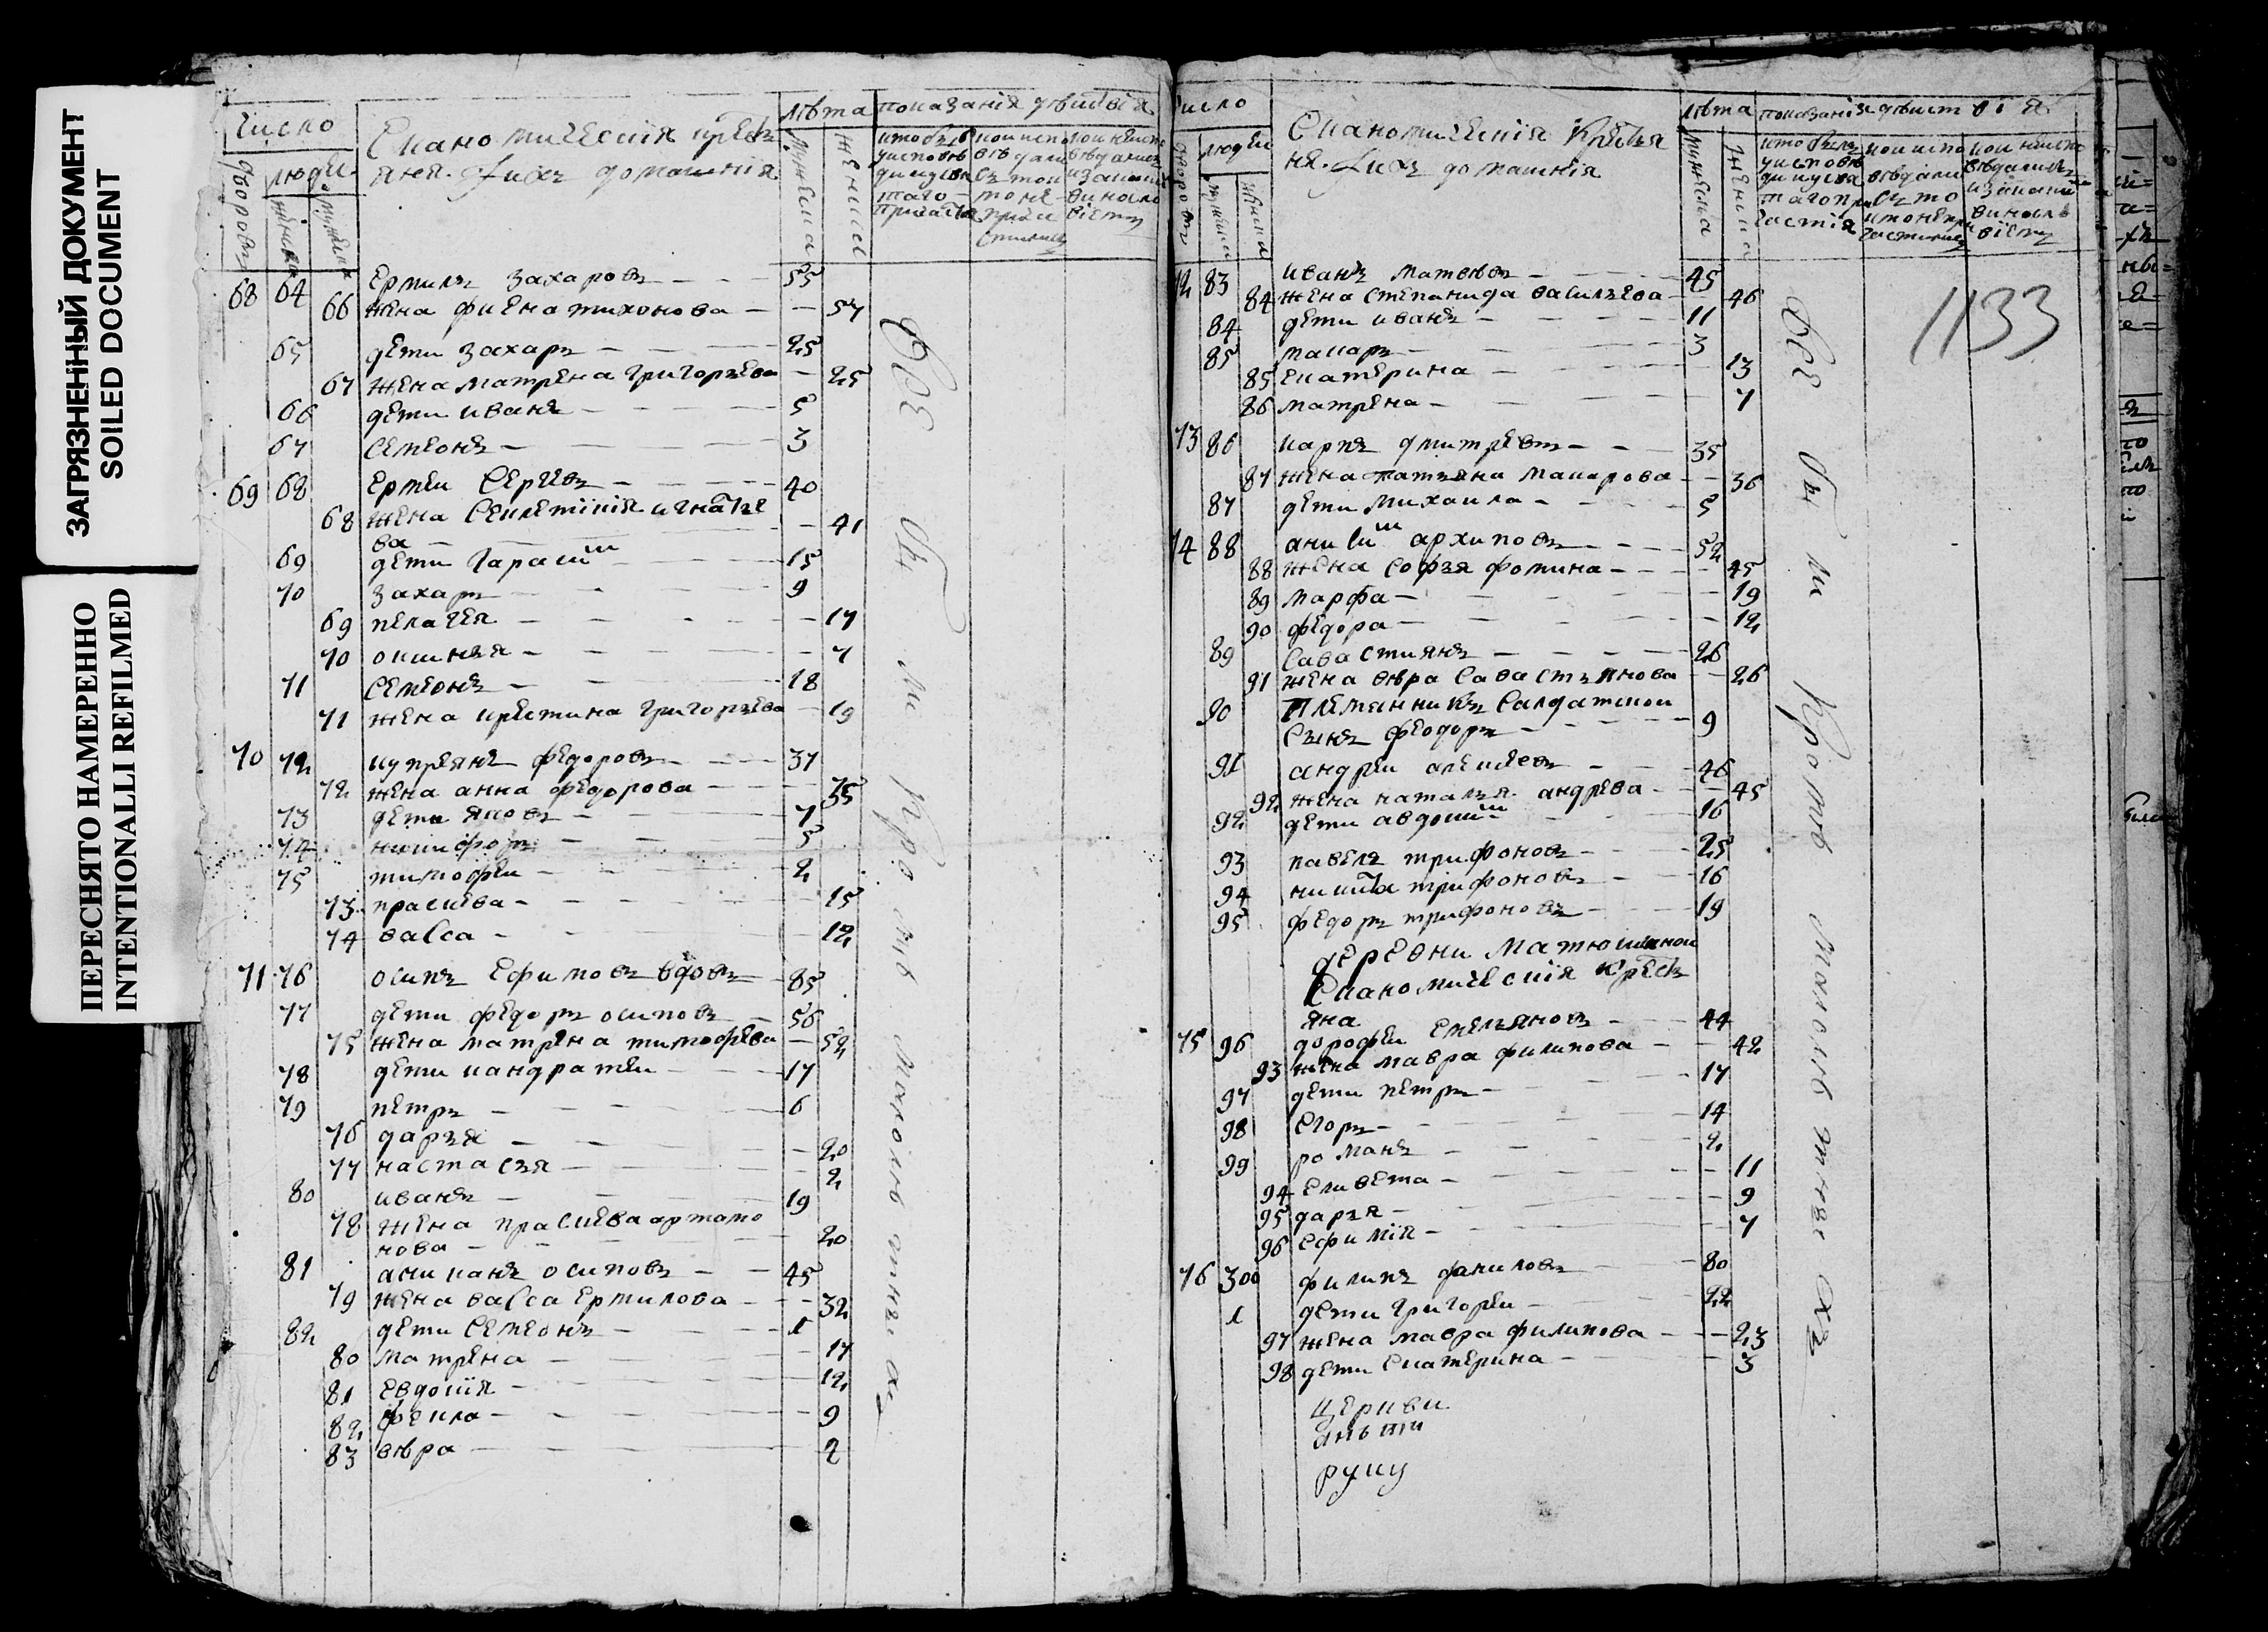 ЗАГРЯЗНЕННЫЙ ДОКУМЕНТ
SOILED DOCUMENT
ПЕРЕСНЯТО НАМЕРЕННО
INTENTIONALLI REFILMED
число
дворовъ
люди
лѣта
мужеска
женска
показанія дѣйствія
68 64 Ермилъ Захаровъ 55
66 жена фиена тихонова 57
65 дети Захаръ 25
67 жена матрена григорьева 25
66 дети иванъ 5
67 Семеонъ 3
69 68 Ермеи Сергѣвъ 40
68 жена Секлетінія игнатье
ва 41
69 дети Гарасим 15
70 Захаръ 9
69 пелагея 17
70 окшнъя 7
71 Семеонъ 18
71 жена крестина григорьева 19
70 72 купреянъ федоровъ 37
72 жена анна федорова 35
73 дети яковъ 7
74 никифоръ 5
75 тимофеи 2
73 праскева 15
74 васса 12
71 76 осипъ Ефимовъ вдовъ 85
77 дети федоръ осиповъ 56
75 жена матрена тимофева 52
78 дети кандратеи 17
79 петръ 6
76 даръя 20
77 настасъя 2
80 иванъ 19
78 жена праскева артамо
нова 20
81 аниканъ осиповъ 45
79 жена васса Ермилова 32
82 дети Семеонъ 1
80 матрена 17
81 Евдокія 12
82 фекла 9
83 вѣра 2
всѣ бы ли кро мѣ малолѣ тны хъ
число
дворовъ
люди
лѣта
мужеска
женска
1133
72 83 иванъ матвѣвъ 45
84 жена степанида васильева 46
84 дети иванъ 11
85 макаръ 3
85 Екатерина 13
86 матрена 7
73 86 карпъ дмитревъ 35
87 жена татъяна макарова 36
87 дети михаила 5
74 88 анисим архиповъ 52
88 жена софъя фомина 45
89 марфа 19
90 федора 12
89 Савастиянъ 26
91 жена вѣра Савастъянова 26
90 Племянникъ Салдатской
сынъ феодоръ 9
91 андреи алексѣевъ 46
92 жена наталъя андрева 45
92 дети авдоким 16
93 павелъ трифоновъ 25
94 никита трифоновъ 16
95 федоръ трифоновъ 19
деревни Матюшиной
Економическія крестъ
яна
75 96 дорофеи Емелъяновъ 44
93 жена мавра филипова 42
97 дети петръ 17
98 Егоръ 14
99 романъ 2
94 Еливета 11
95 даръя 9
96 Ефимія 7
76 300 филипъ даниловъ 80
1 дети григореи 22
97 жена мавра филипова 23
98 дети Екатерина 3
все бы ли кромѣ малолѣ тны хъ
церкви
руку